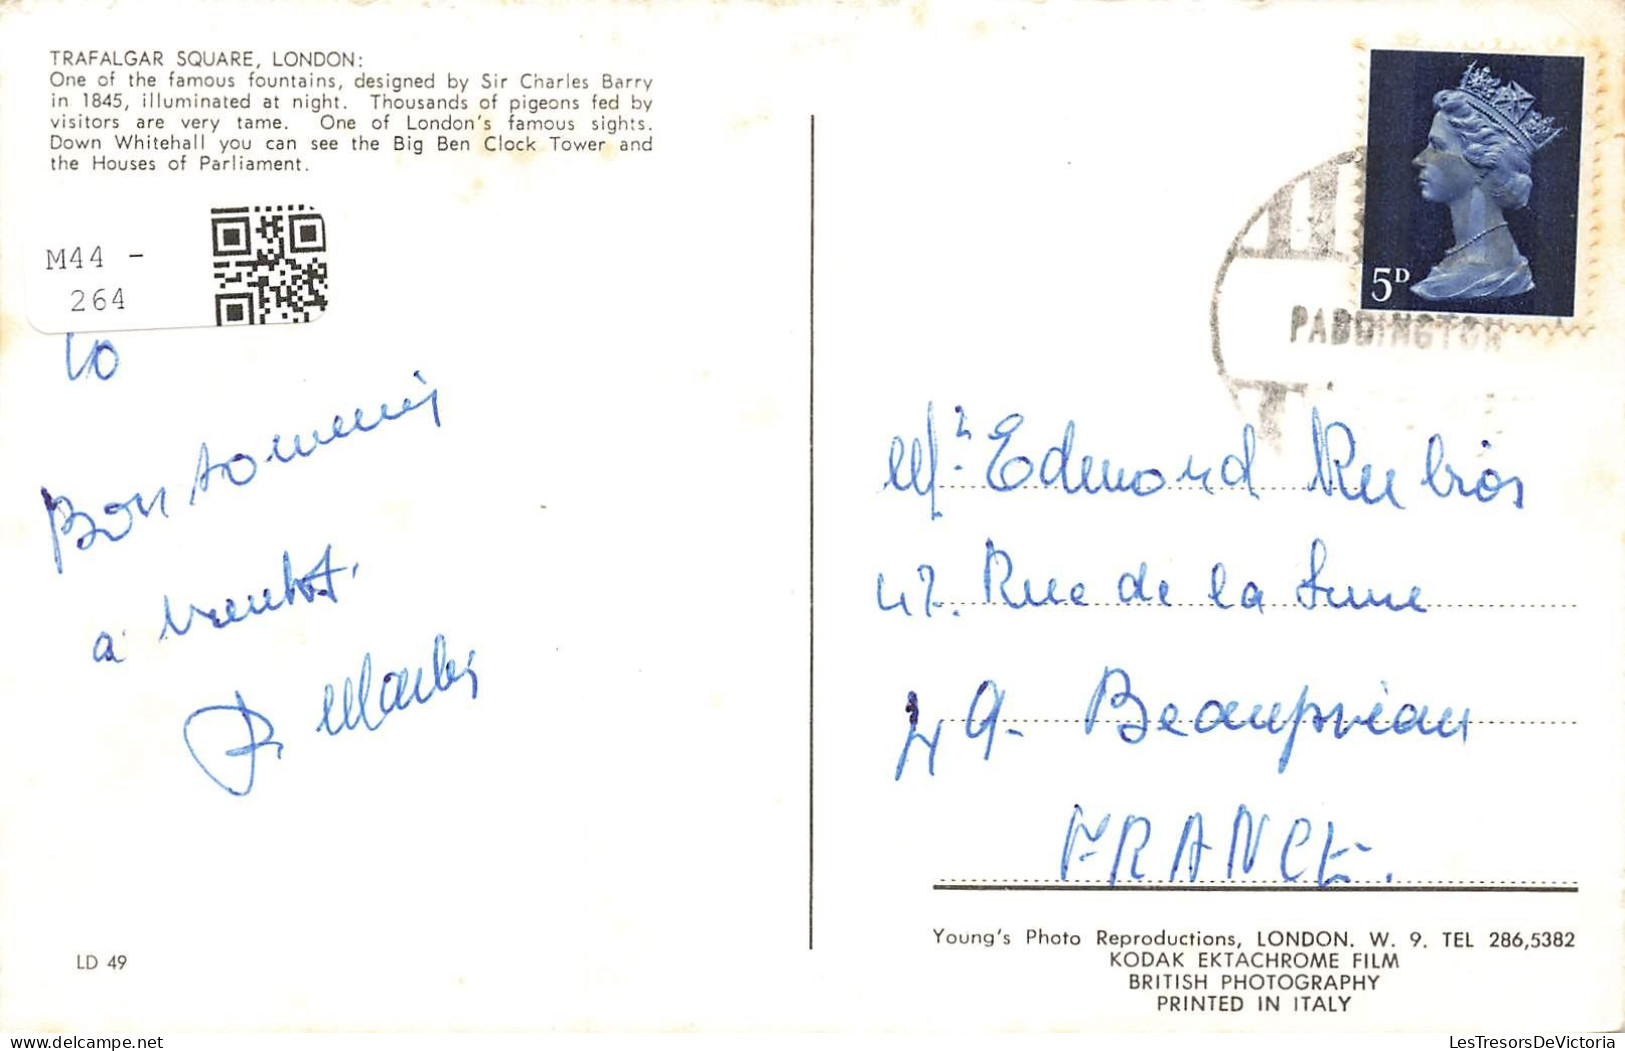 TRAFALGAR SQUARE, LONDON:
One of the famous fountains, designed by Sir Charles Barry
in 1845, illuminated at night. Thousands of pigeons fed by
visitors are very tame. One of London's famous sights.
Down Whitehall you can see the Big Ben Clock Tower and
the Houses of Parliament.
M44 -
264
Bon souvenir
a
LD 49
5D
PADDINGTON
Mr. Edmond
47. Rue de la
49. Beaupréau
FRANCE.
Young's Photo Reproductions, LONDON. W. 9. TEL 286,5382
KODAK EKTACHROME FILM
BRITISH PHOTOGRAPHY
PRINTED IN ITALY
LesTresorsDeVictoria